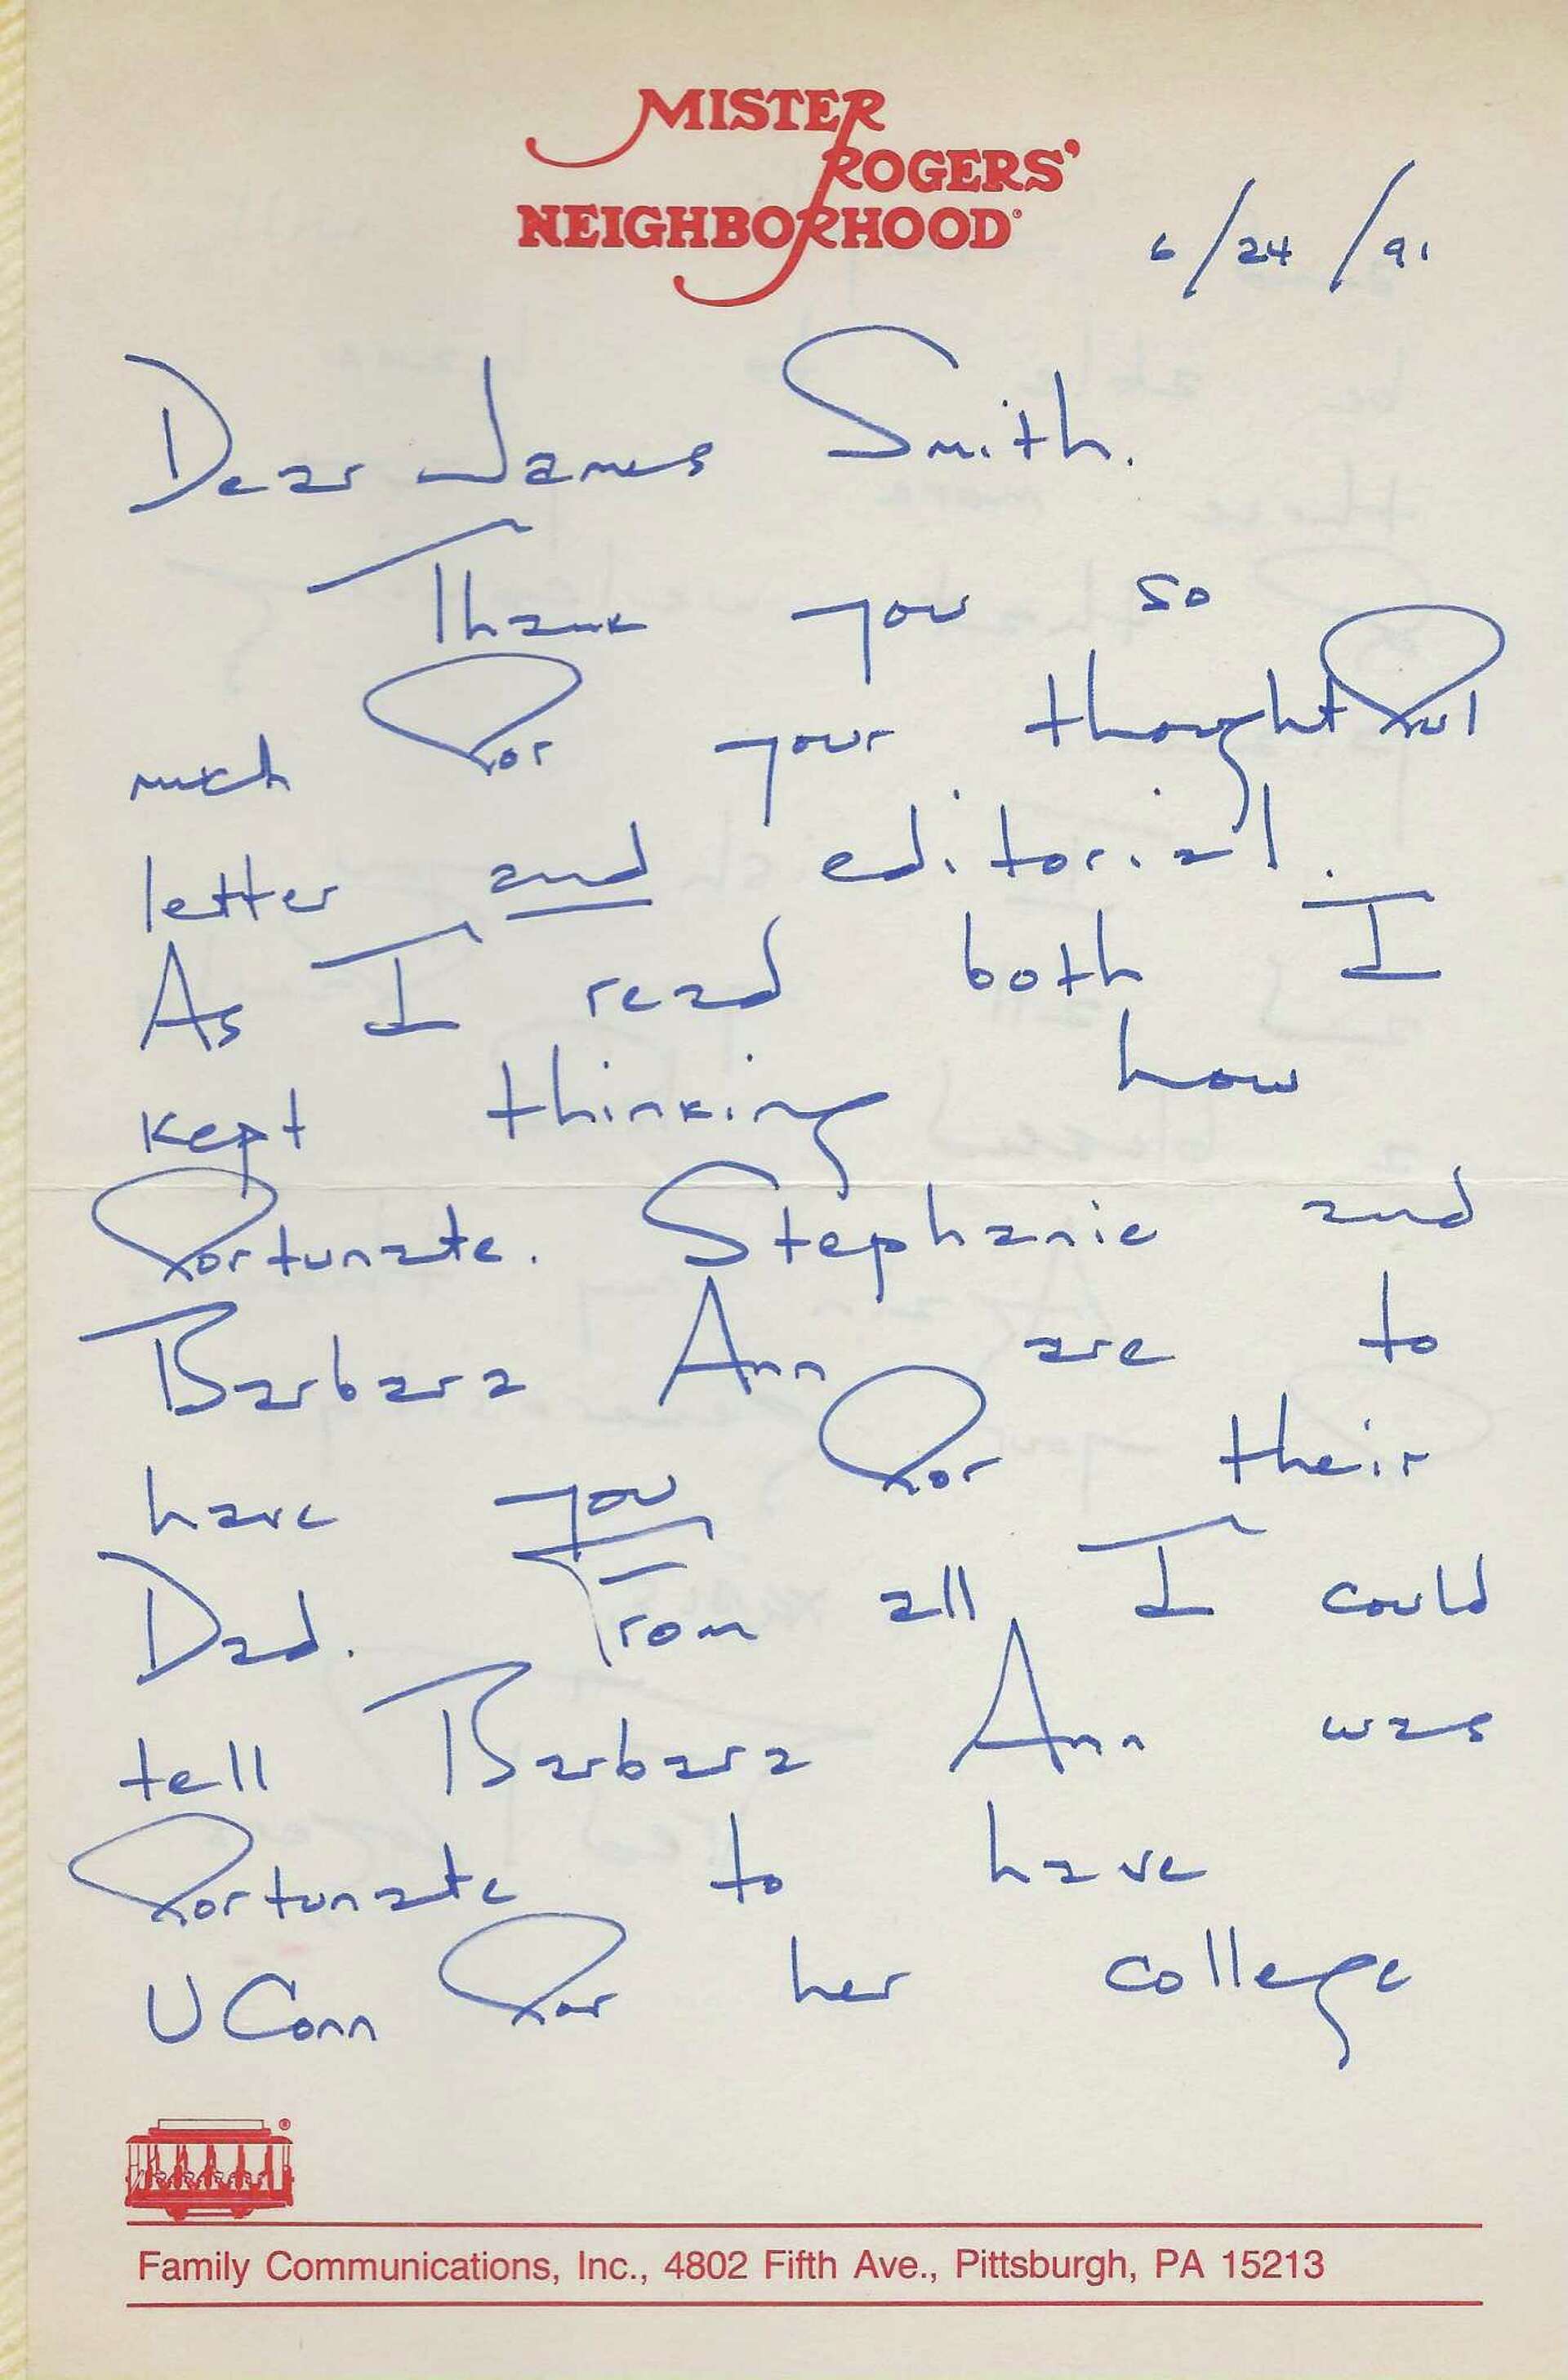 MISTER
ROGERS'
NEIGHBORHOOD
6/24/91
Dear James Smith.
Thank you so
much for your thoughtful
letter and editorial.
As I read both I
kept thinking how
fortunate. Stephanie and
Barbara Ann are to
have you for their
Dad. From all I could
tell Barbara Ann was
fortunate to have
UConn for her college
Family Communications, Inc., 4802 Fifth Ave., Pittsburgh, PA 15213